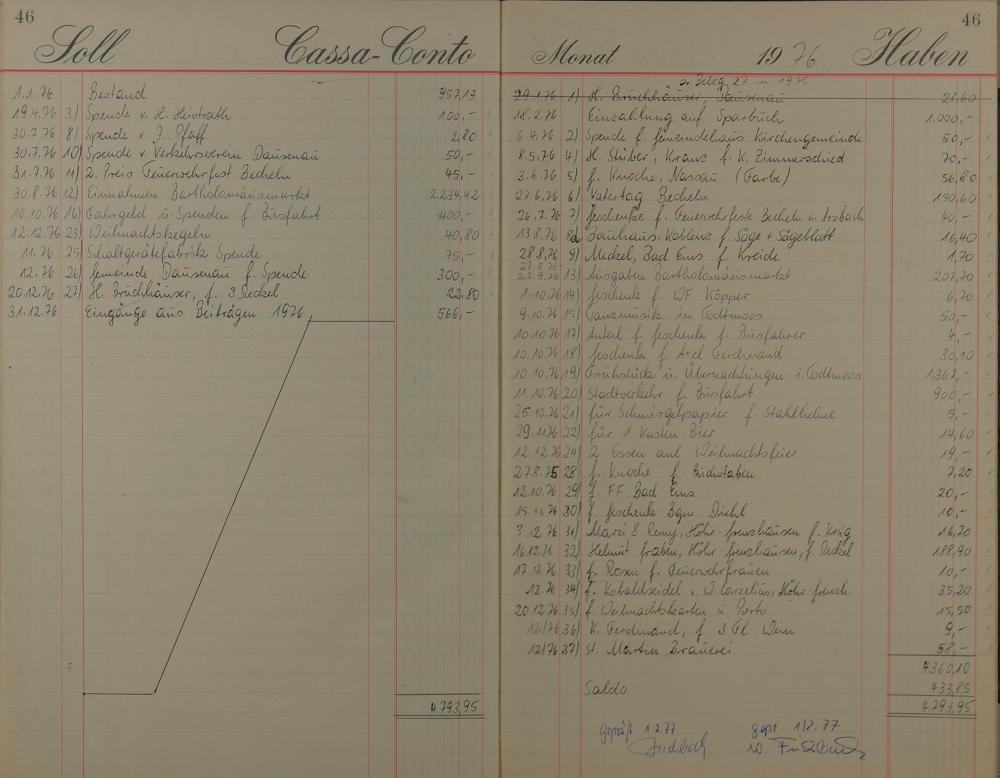 46
Soll Cassa-Conto
1.1.76 Bestand 957,13
19.4.76 3) Spende v. H. Heidrath 100,-
30.7.76 8) Spende v. J. Pfaff 2,80
30.7.76 10) Spende v. Verkehrsverein Dausenau 50,-
31.7.76 11) 2. Preis Feuerwehrfest Becheln 45,-
30.8.76 12) Einnahmen Bartholomäusmarkt 2.234,42
10.10.76 16) Fahrgeld u. Spenden f. Busfahrt 400,-
12.12.76 23) Weihnachtskegeln 40,80
11.76 25) Schaltgerätefabrik Spende 75,-
12.76 26) Gemeinde Dausenau f. Spende 300,-
20.12.76 27) H. Bruchhäuser, f. 3 Deckel 22,80
31.12.76 Eingänge aus Beiträgen 1976 566,-
4.793,95
46
Monat 1976 Haben
s. Beleg 27 in 1975
29.1.76 1) H. Bruchhäuser, Dausenau 28,60
18.2.76 Einzahlung auf Sparbuch 1.000,-
6.4.76 2) Spende f. Gemeindehaus Kirchengemeinde 50,-
8.5.76 4) H. Stüber, Kranz f. K. Zimmerschied 70,-
3.6.76 5) f. Knoche, Nassau (Farbe) 56,80
27.6.76 6) Vatertag Becheln 150,60
26.7.76 7) Geschenke f. Feuerwehrfeste Becheln u. Arzbach 40,-
13.8.76 8a Bauhaus, Koblenz f. Säge + Sägeblatt 16,40
28.8.76 9) Meckel, Bad Ems f. Kreide 1,70
27.8.-
22.9.76 13) Ausgaben Bartholomäusmarkt 207,70
1.10.76 14) Geschenk f. WF Köpper 6,70
9.10.76 15) Tanzmusik in Todtmoos 50,-
10.10.76 17) Anteil f. Geschenk f. Busfahrer 4,-
10.10.76 18) Geschenk f. Axel Ferdinand 30,10
10.10.76 19) Frühstück u. Übernachtungen i. Todtmoos 1.367,-
11.10.76 20) Stadtverkehr f. Busfahrt 900,-
25.10.76 21) für Schmirgelpapier f. Stahlhelme 5,-
29.11.76 22) für 1 Kasten Bier 14,60
12.12.76 24) 2 Essen auf Weihnachtsfeier 19,-
27.8.75 28) f. Knoche f. Buchstaben 7,20
12.10.76 29) f. FF Bad Ems 20,-
15.11.76 30) f. Geschenk Bgm. Diehl 10,-
3.12.76 31) Marzi & Remy, Höhr-Grenzhausen f. Krug 16,70
16.12.76 32) Helmut Graben, Höhr-Grenzhausen, f. Deckel 188,90
17.12.76 33) f. Rosen f. Feuerwehrfrauen 10,-
12.76 34) f. Kobaldseidel v. W. Corzelius, Höhr-Grenzh. 35,20
20.12.76 35) f. Weihnachtskarten u. Porto 15,50
12/76 36) K. Ferdinand, f. 3 Fl. Wein 9,-
12/76 37) St. Martin Brauerei 58,-
4360,10
Saldo 433,85
4.793,95
geprüft 1.2.77 gepr. 1/2.77